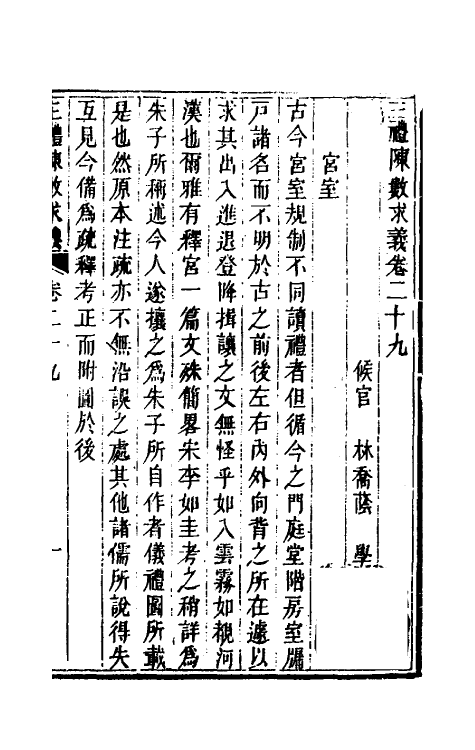 三禮陳數求義卷二十九
候官 林喬蔭 學
宮室
古今宮室規制不同讀禮者但循今之門庭堂階房室牖
戸諸名而不明於古之前後左右內外向背之所在遽以
求其出入進退登降揖讓之文無怪乎如入雲霧如觀河
漢也爾雅有釋宮一篇文殊簡畧宋李如圭考之稍詳爲
朱子所稱述今人遂攘之爲朱子所自作者儀禮圖所載
是也然原本注疏亦不無沿誤之處其他諸儒所說得失
互見今備爲疏釋考正而附圖於後
三禮陳數求義 卷二十九 一